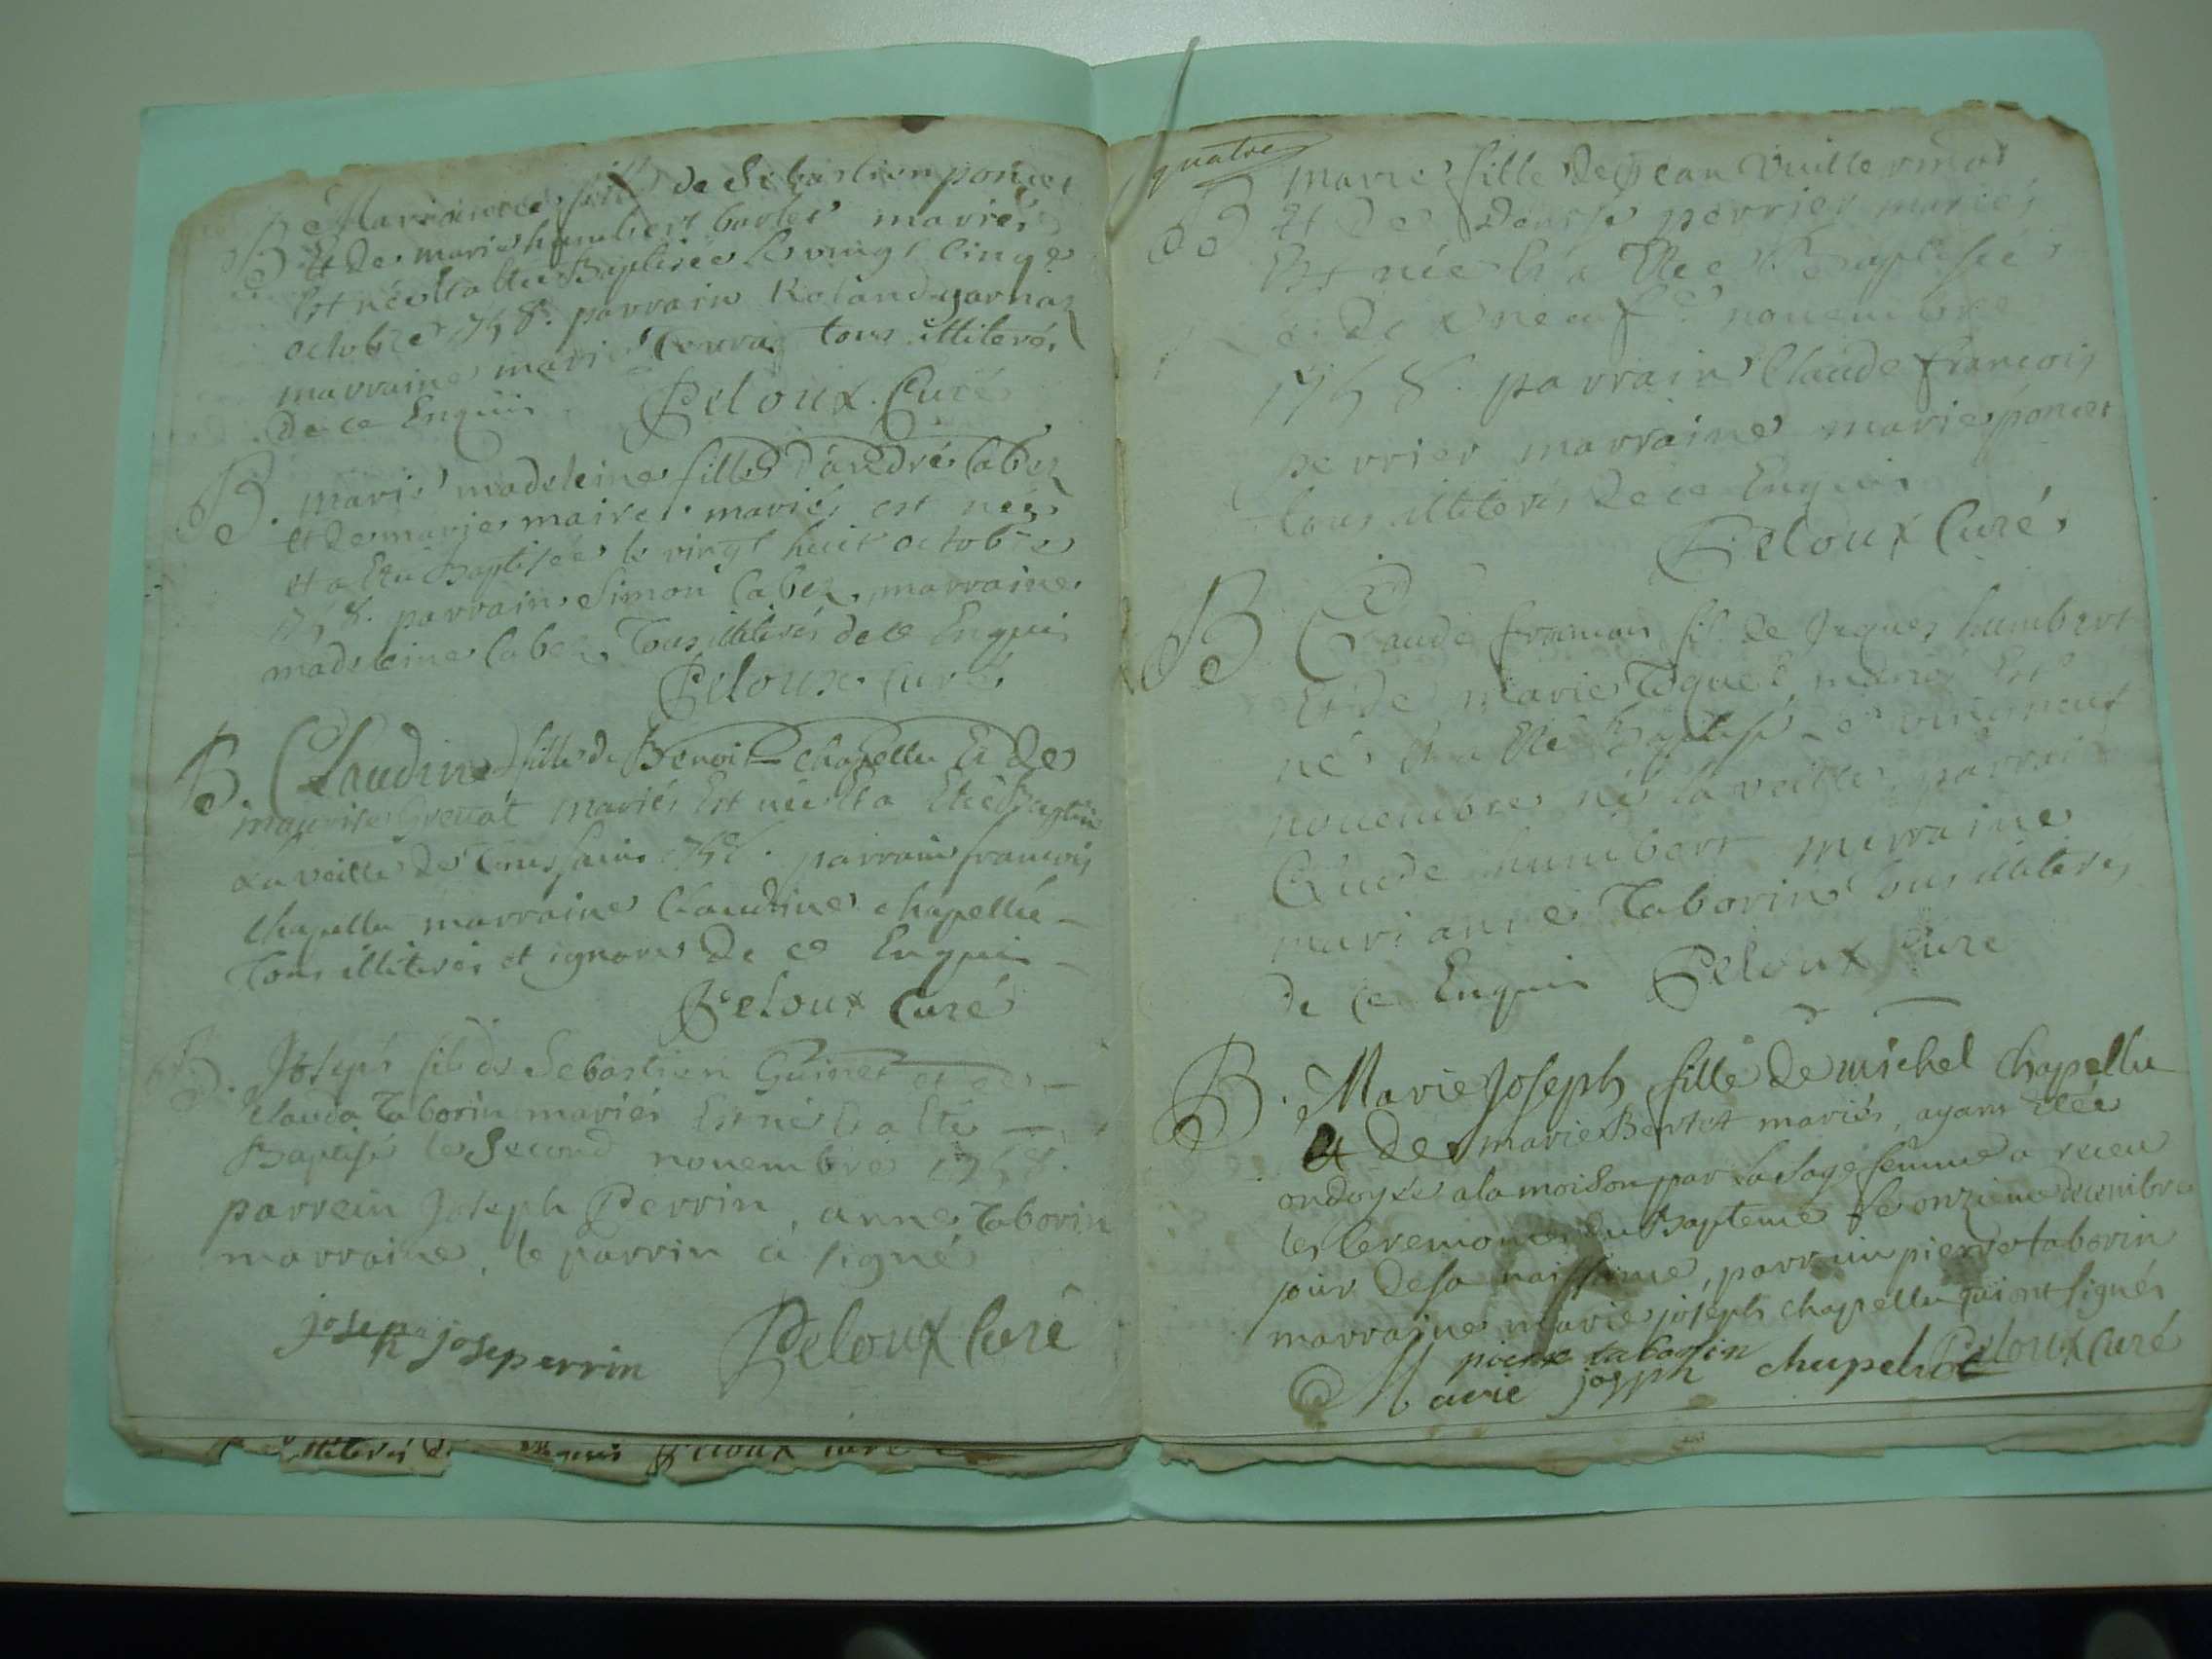 B Marianne fille de Sebastien poncet
Et de marie humbert barbet mariés
Est née Et a Eté Baptisée le vingt cinq
octobre 1758. parrain Roland garnaz
marraine marie tous illiterés
de ce Enquis Peloux Curé
B. marie madeleine fille d'andré Cabez
et de marie maire mariés est née
et a Eté Baptisée le vingt huit octobre
1758. parrain Simon Cabez, marraine
madeleine Cabez, Tous illiterés de ce Enquis
Peloux Curé
B. Claudine fille de Benoit Chapellu Et de
maurise Grenat mariés Est née Et a Eté Baptisée
La veille de Toussains 1758. parrain francois
Chapellu marraine Claudine Chapellu
Tous illiterés et ignares De ce Enquis
Peloux Curé
B. Joseph fils de Sebastien Guinet et de
Clauda Taborin mariés Est né Et a Eté
Baptisé le Second novembre 1758.
parrein Joseph Perrin, anne Taborin
marraine, le parrin a signé
joseph josep errin Peloux Curé
illiterés de Enquis Peloux curé
quatre
B marie fille de Jean Vuillermoz
Et de Denise perrier mariés
Est née Et a Etée Baptisée
le neuf novembre
1758. parrain Claude francois
perrier marraine marie poncet
tous illiterés de ce Enquis
Peloux Curé
B Claude francois fils de Jaques humbert
Et de marie Toquet mariés Est
né Et a Eté Baptisé le vingt neuf
novembre né la veille, parrain
Claude humbert marraine
marianne Taborin tous illiterés
de ce Enquis Peloux Curé
B. Marie Joseph fille de michel Chapellu
Et de marie Bertet mariés, ayant Etée
ondoyée a la moison par la Sage femme a receu
les Ceremonies du Bapteme le onzieme decembre
jour de sa naissance, parrain pierre taborin
marraine marie joseph chapellu qui ont signés
pierre taborin Peloux Curé
Marie joseph chupelut